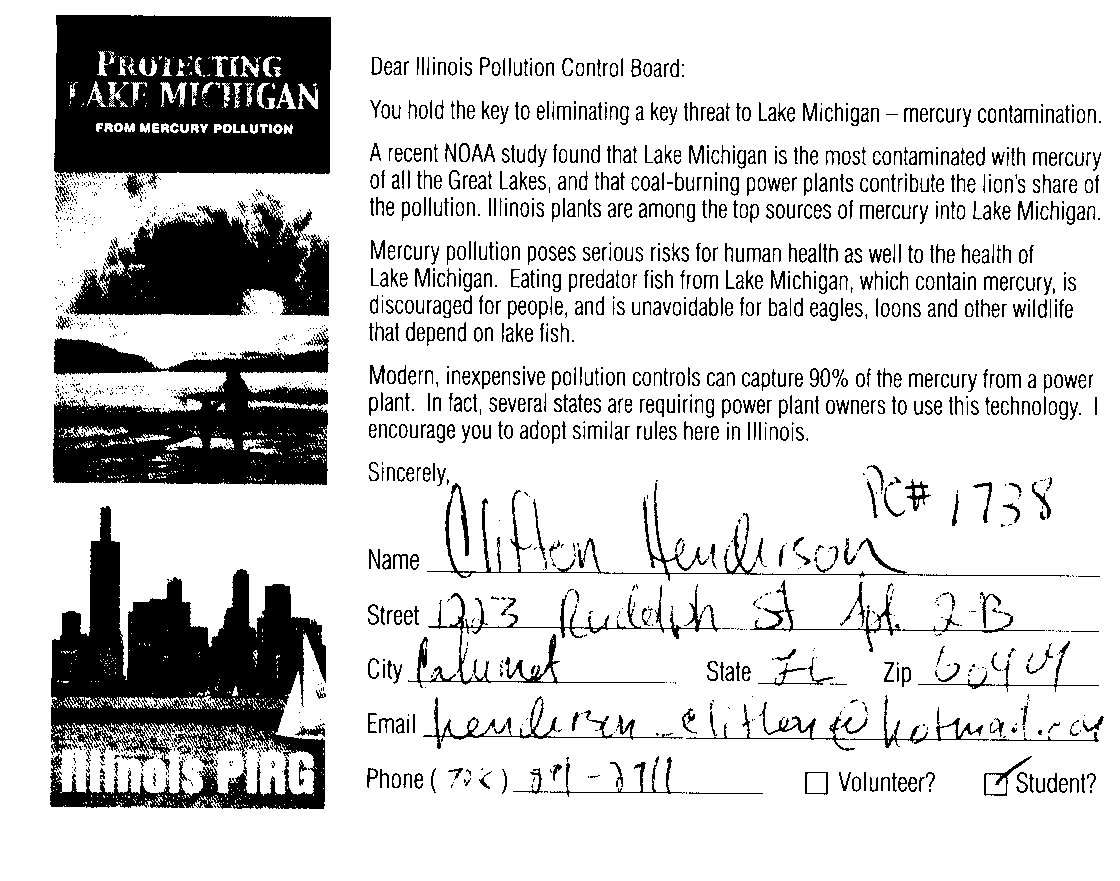 PROTECTING
LAKE MICHIGAN
FROM MERCURY POLLUTION
Illinois PIRG
Dear Illinois Pollution Control Board:
You hold the key to eliminating a key threat to Lake Michigan – mercury contamination.
A recent NOAA study found that Lake Michigan is the most contaminated with mercury
of all the Great Lakes, and that coal-burning power plants contribute the lion's share of
the pollution. Illinois plants are among the top sources of mercury into Lake Michigan.
Mercury pollution poses serious risks for human health as well to the health of
Lake Michigan. Eating predator fish from Lake Michigan, which contain mercury, is
discouraged for people, and is unavoidable for bald eagles, loons and other wildlife
that depend on lake fish.
Modern, inexpensive pollution controls can capture 90% of the mercury from a power
plant. In fact, several states are requiring power plant owners to use this technology. I
encourage you to adopt similar rules here in Illinois.
Sincerely,
PC# 1738
Name Clifton Henderson
Street 1223 Rudolph St Apt. 2-B
City Calumet State IL Zip 60409
Email henderson_clifton@hotmail.com
Phone (708)
Volunteer? Student?